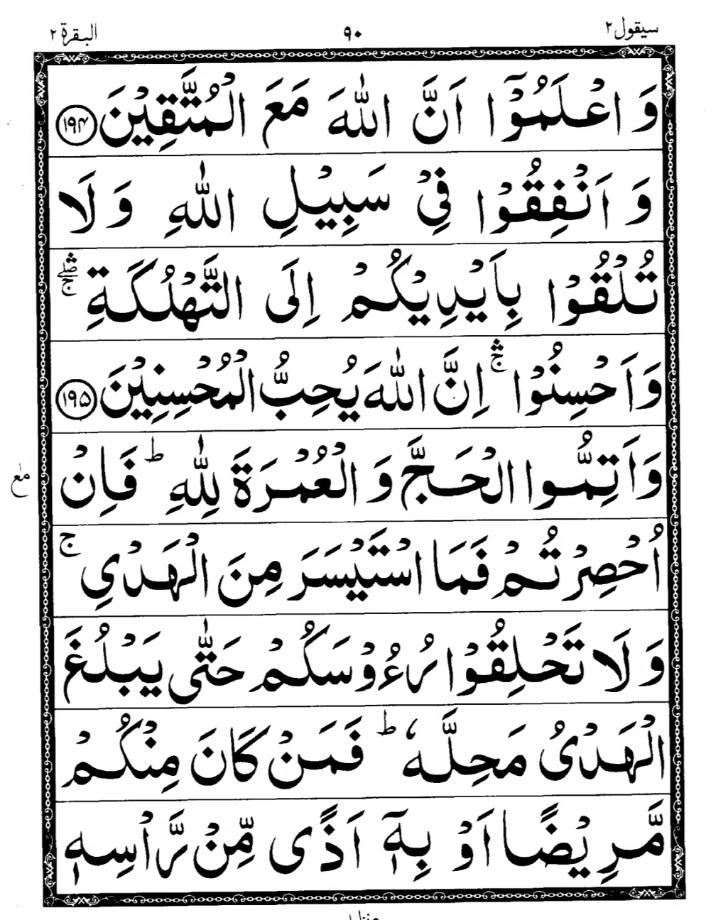 سيقول٢ ٩٠ البقرة ٢
وَ اعْلَمُوْٓا اَنَّ اللّٰهَ مَعَ الْمُتَّقِيْنَ ﴿۱۹۴﴾
وَ اَنْفِقُوْا فِيْ سَبِيْلِ اللّٰهِ وَ لَا
تُلْقُوْا بِاَيْدِيْكُمْ اِلَى التَّهْلُكَةِ ۛۖۚ
وَاَحْسِنُوْا ۛۚ اِنَّ اللّٰهَ يُحِبُّ الْمُحْسِنِيْنَ ﴿۱۹۵﴾
وَاَتِمُّوا الْحَجَّ وَ الْعُمْرَةَ لِلّٰهِ ؕ فَاِنْ
اُحْصِرْتُمْ فَمَا اسْتَيْسَرَ مِنَ الْهَدْيِ ۚ
وَ لَا تَحْلِقُوْا رُءُوْسَكُمْ حَتّٰى يَبْلُغَ
الْهَدْيُ مَحِلَّهٗ ؕ فَمَنْ كَانَ مِنْكُمْ
مَّرِيْضًا اَوْ بِهٖٓ اَذًى مِّنْ رَّاْسِهٖ